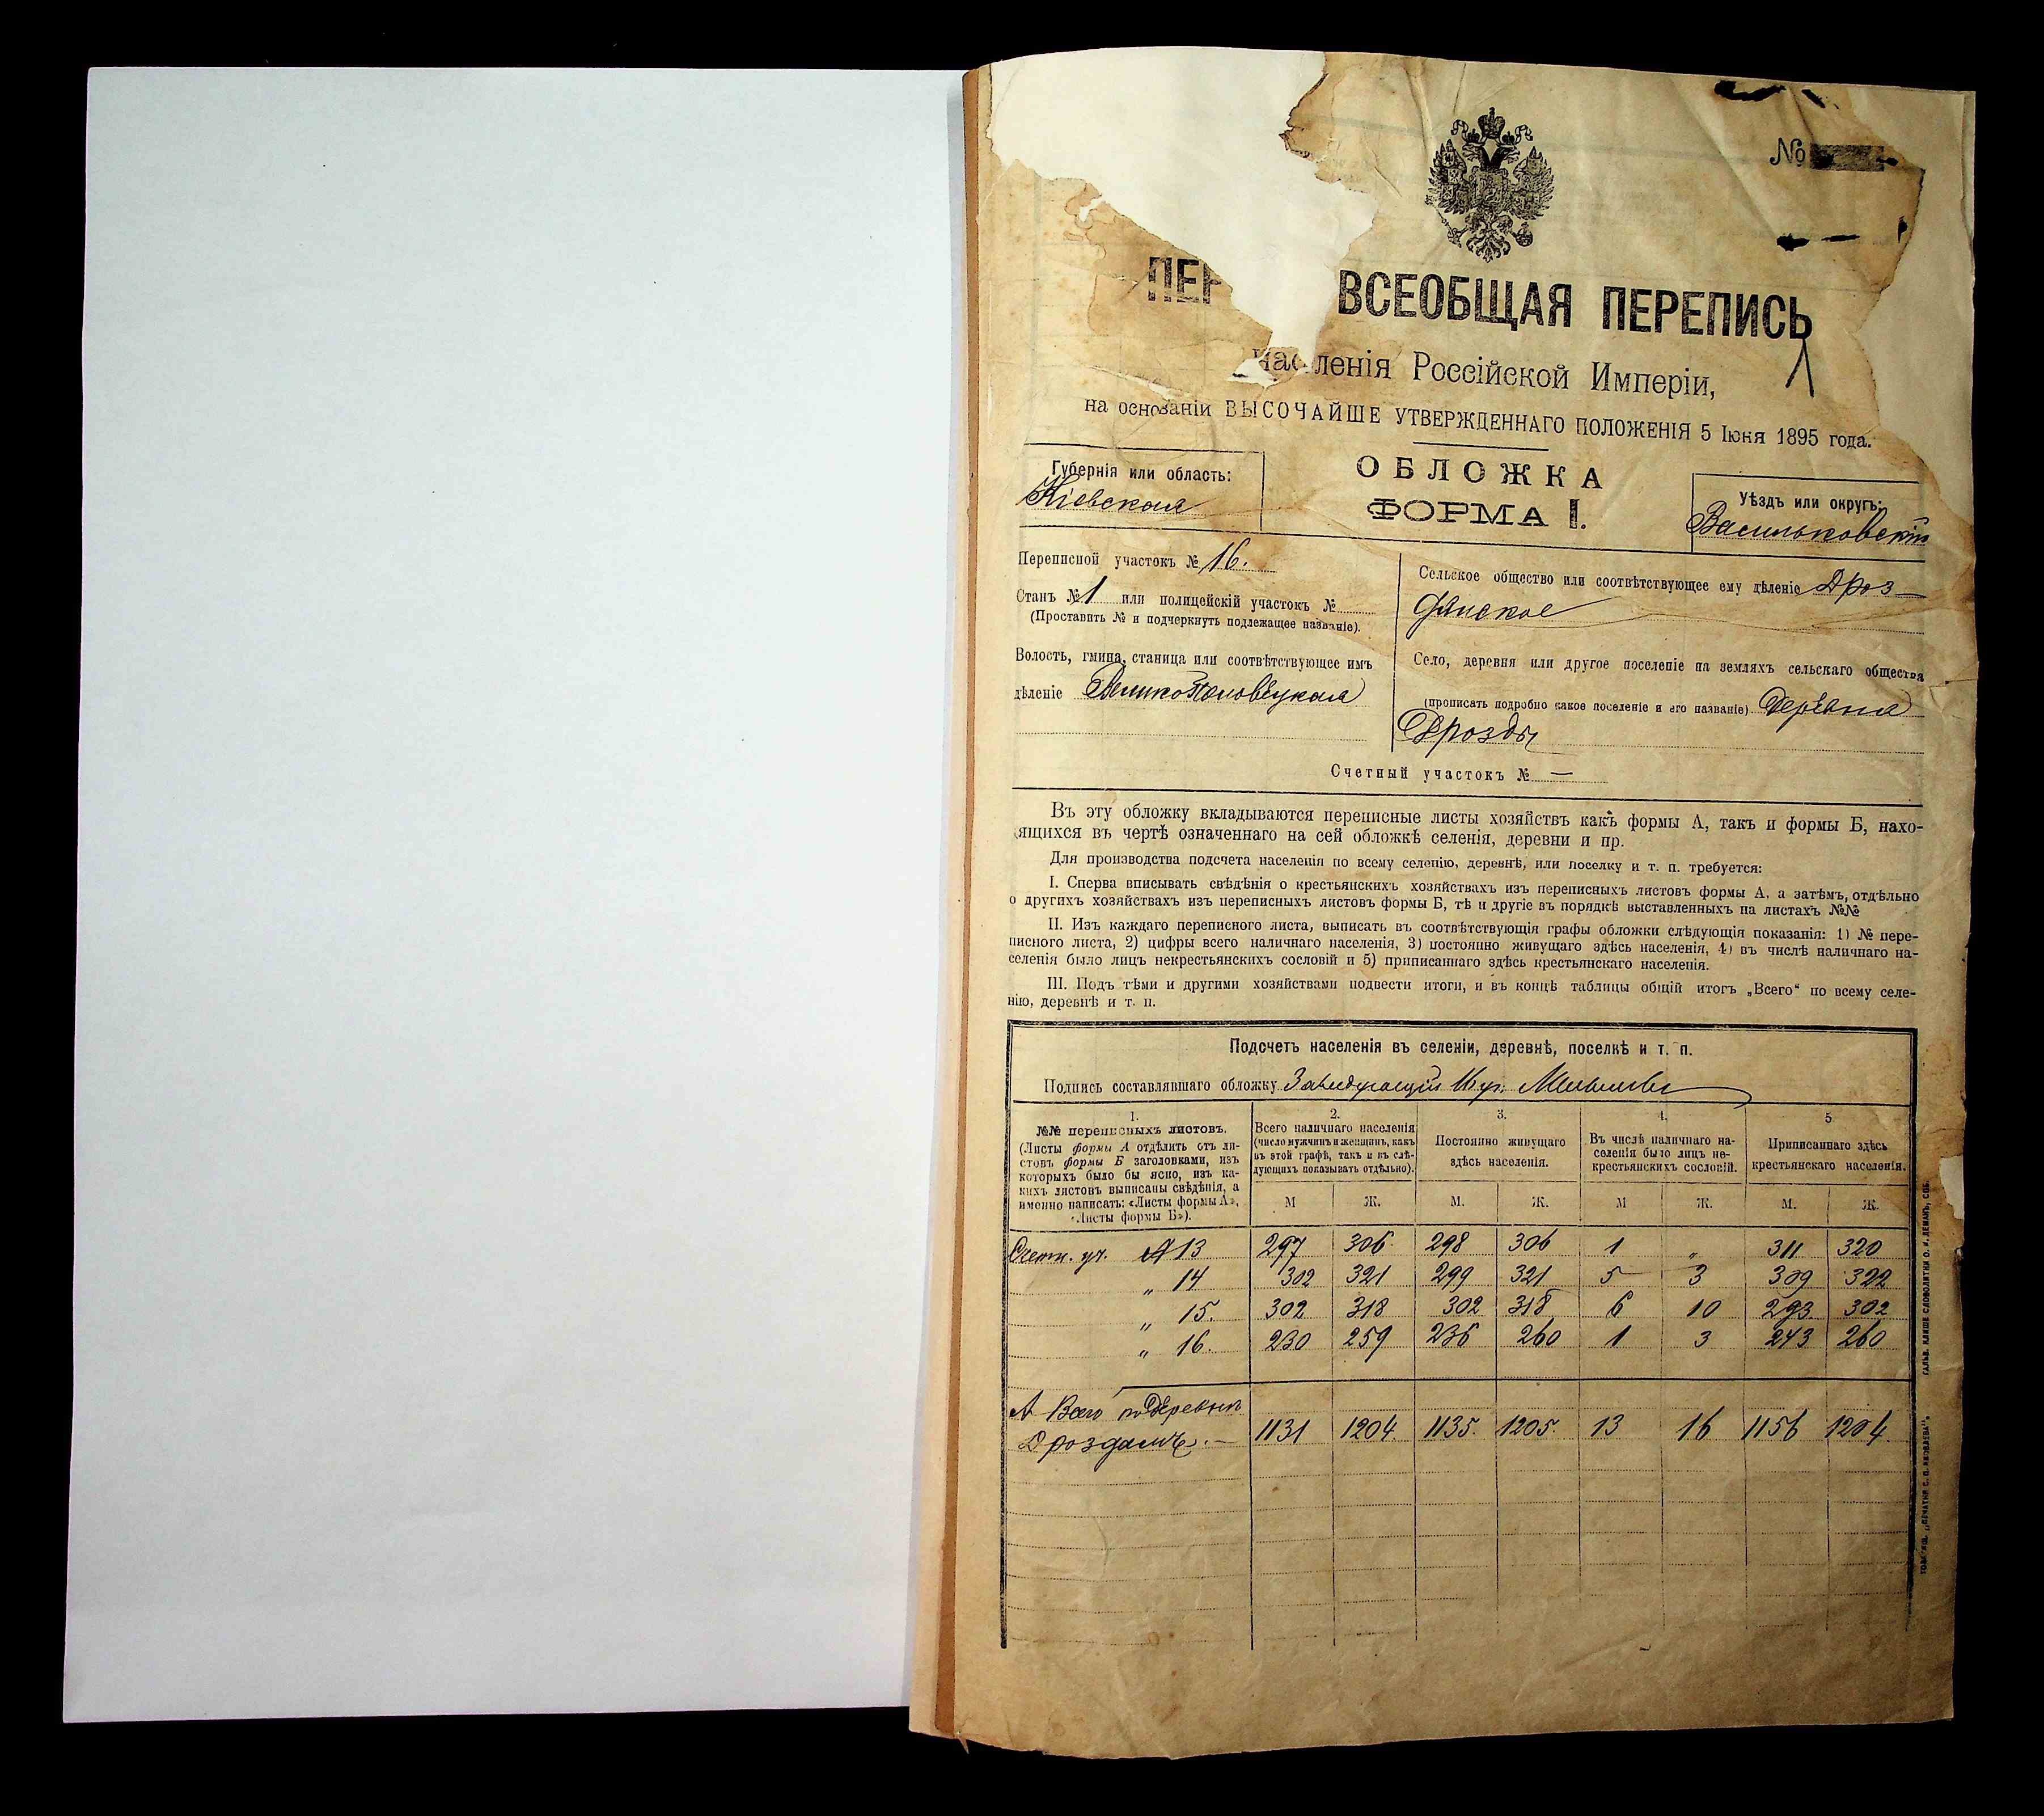 №
ПЕР ВСЕОБЩАЯ ПЕРЕПИСЬ
населенія Россійской Имперіи,
на основаніи ВЫСОЧАЙШЕ УТВЕРЖДЕННАГО ПОЛОЖЕНІЯ 5 Іюня 1895 года.
Губернія или область:
Кіевская
ОБЛОЖКА
ФОРМА I.
Уѣздъ или округъ:
Васильковскій
Переписной участокъ № 16.
Станъ № 1 или полицейскій участокъ №
(Проставить № и подчеркнуть подлежащее названіе).
Волость, гмина, станица или соотвѣтствующее имъ
дѣленіе Великополовецкая
Сельское общество или соотвѣтствующее ему дѣленіе Дроз-
дянское
Село, деревня или другое поселеніе на земляхъ сельскаго общества
(прописать подробно какое поселеніе и его названіе) Деревня
Дрозды
Счетный участокъ № —
Въ эту обложку вкладываются переписные листы хозяйствъ какъ формы А, такъ и формы Б, нахо-
дящихся въ чертѣ означеннаго на сей обложкѣ селенія, деревни и пр.
Для производства подсчета населенія по всему селенію, деревнѣ, или поселку и т. п. требуется:
I. Сперва вписывать свѣдѣнія о крестьянскихъ хозяйствахъ изъ переписныхъ листовъ формы А, а затѣмъ, отдѣльно
о другихъ хозяйствахъ изъ переписныхъ листовъ формы Б, тѣ и другіе въ порядкѣ выставленныхъ на листахъ №№
II. Изъ каждаго переписного листа, выписать въ соотвѣтствующія графы обложки слѣдующія показанія: 1) № пере-
писного листа, 2) цифры всего наличнаго населенія, 3) постоянно живущаго здѣсь населенія, 4) въ числѣ наличнаго на-
селенія было лицъ некрестьянскихъ сословій и 5) приписаннаго здѣсь крестьянскаго населенія.
III. Подъ тѣми и другими хозяйствами подвести итоги, и въ концѣ таблицы общій итогъ „Всего“ по всему селе-
нію, деревнѣ и т. п.
Подсчетъ населенія въ селеніи, деревнѣ, поселкѣ и т. п.
Подпись составлявшаго обложку Завѣдующій 16 уч.
1.
№№ переписныхъ листовъ.
(Листы формы А отдѣлить отъ ли-
стовъ формы Б заголовками, изъ
которыхъ было бы ясно, изъ ка-
кихъ листовъ выписаны свѣдѣнія, а
именно написать: «Листы формы А»,
«Листы формы Б»).
2.
Всего наличнаго населенія
(число мужчинъ и женщинъ, какъ
въ этой графѣ, такъ и въ слѣ-
дующихъ показывать отдѣльно).
3.
Постоянно живущаго
здѣсь населенія.
4.
Въ числѣ наличнаго на-
селенія было лицъ не-
крестьянскихъ сословій.
5.
Приписаннаго здѣсь
крестьянскаго населенія.
М Ж. М. Ж. М Ж. М. Ж.
Счетн. уч. А 13 297 306 298 306 1 „ 311 320
„ 14 302 321 299 321 5 3 309 322
„ 15. 302 318 302 318 6 10 293 302
„ 16. 230 259 236 260 1 3 243 260
А Всего по деревнѣ
Дроздамъ. — 1131 1204 1135 1205 13 16 1156 1204
ГАЛЬВ. КЛИШЕ СЛОВОЛИТНИ О. И. ЛЕМАНЪ, СПБ.
ТОВАРИЩ. „ПЕЧАТНИ С. П. ЯКОВЛЕВА“.